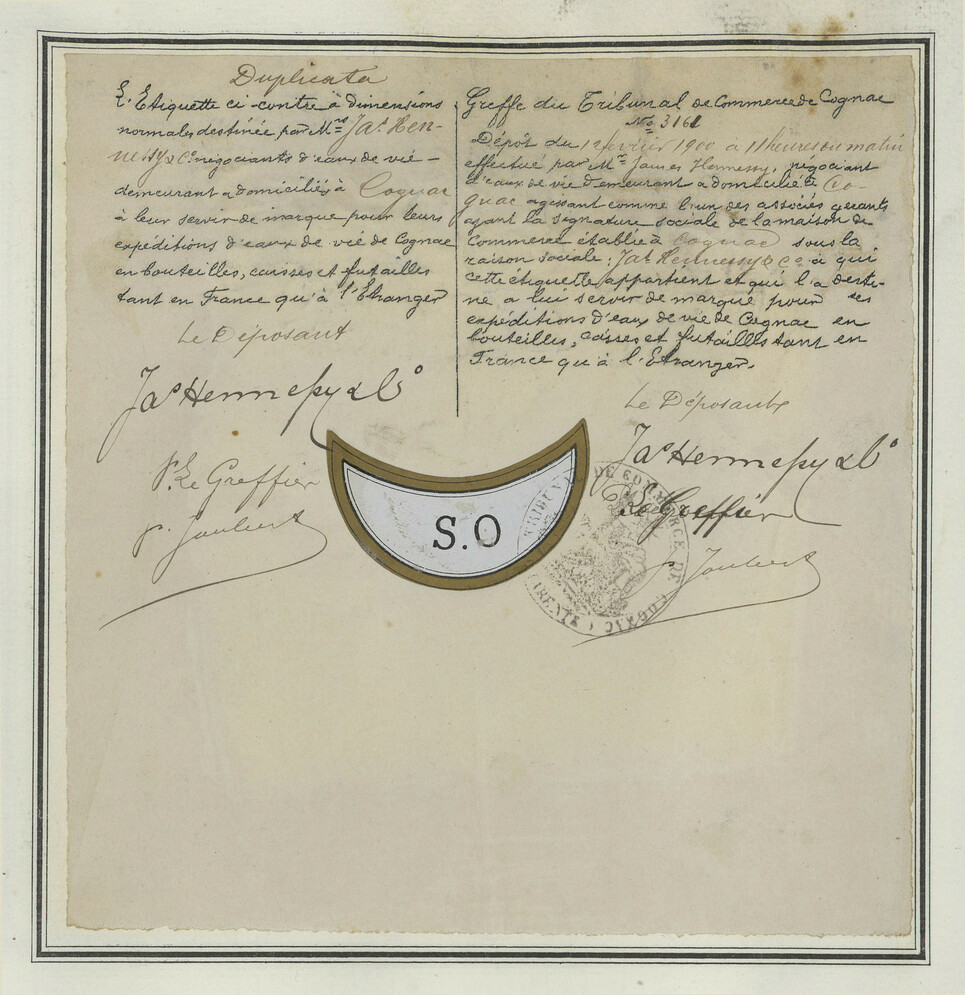 Duplicata
L'Etiquette ci-contre à dimensions
normales destinée par Mrs Jas Hen-
nessy & Co négociants d'eaux de vie -
demeurant & domiciliés à Cognac
à leur servir de marque pour leurs
expéditions d'eaux de vie de Cognac
en bouteilles, caisses et futailles
tant en France qu'à l'Etranger
Le Déposant
Jas Hennessy & Co
P. Le Greffier
P. Joubert
Greffe du Tribunal de Commerce de Cognac
No 3161
Dépôt du 12 février 1900 à 11 heures du matin
effectué par Mr James Hennessy, négociant
d'eaux de vie demeurant & domicilié à Co-
gnac agissant comme l'un des associés gérants
ayant la signature sociale de la maison de
Commerce établie à Cognac sous la
raison sociale : Jas Hennessy & Co à qui
cette étiquette appartient et qui l'a desti-
né a lui servir de marque pour ses
expéditions d'eaux de vie de Cognac en
bouteilles, caisses et futailles tant en
France qu'à l'Etranger.
Le Déposant
Jas Hennessy & Co
P. Le Greffier
P. Joubert
S.O
TRIBUNAL DE COMMERCE DE COGNAC
CHARENTE